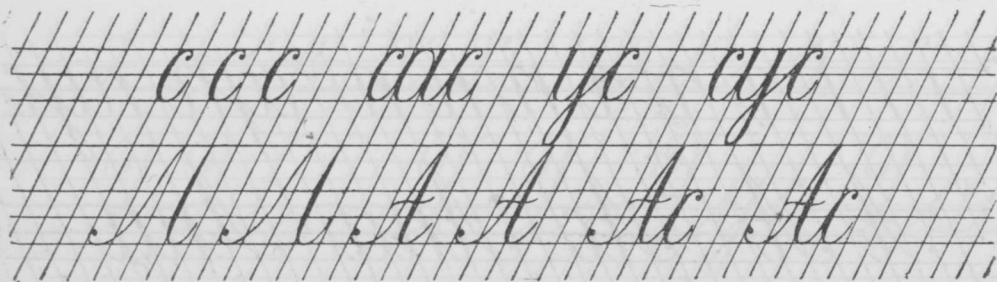 с с с сас ус сус
Л Л А А Ас Ас